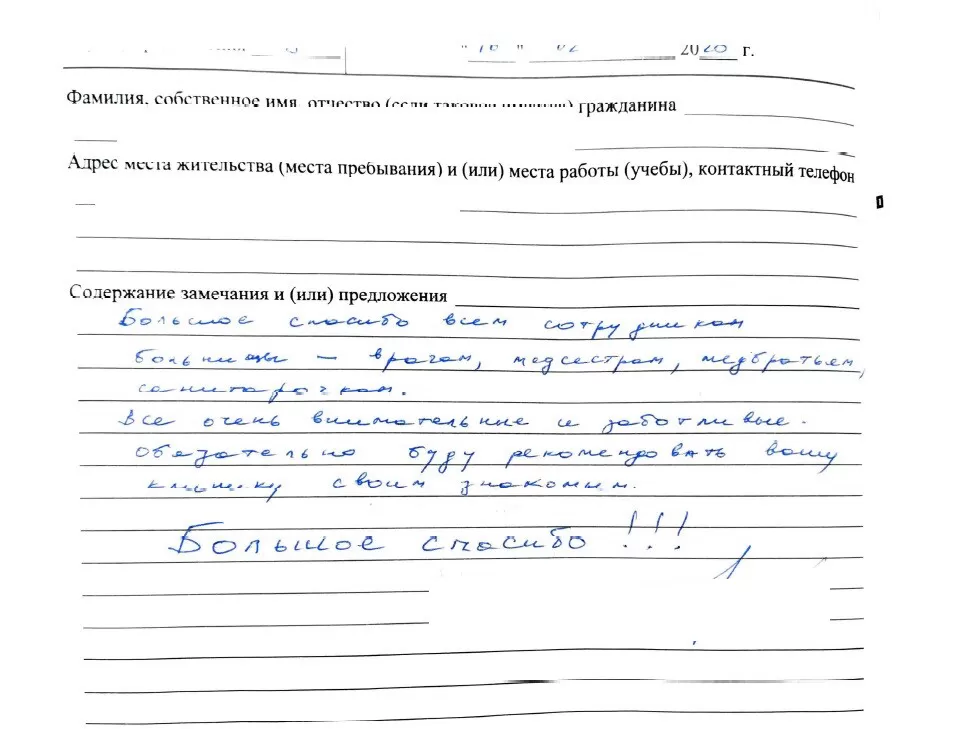 " 16 " 02 2020 г.
Фамилия, собственное имя, отчество (если таковое имеется) гражданина
Адрес места жительства (места пребывания) и (или) места работы (учебы), контактный телефон
Содержание замечания и (или) предложения
Большое спасибо всем сотрудникам
больницы – врачам, медсестрам, медбратьям,
санитарочкам.
Все очень внимательные и заботливые.
Обязательно буду рекомендовать вашу
клинику своим знакомым.
Большое спасибо !!!